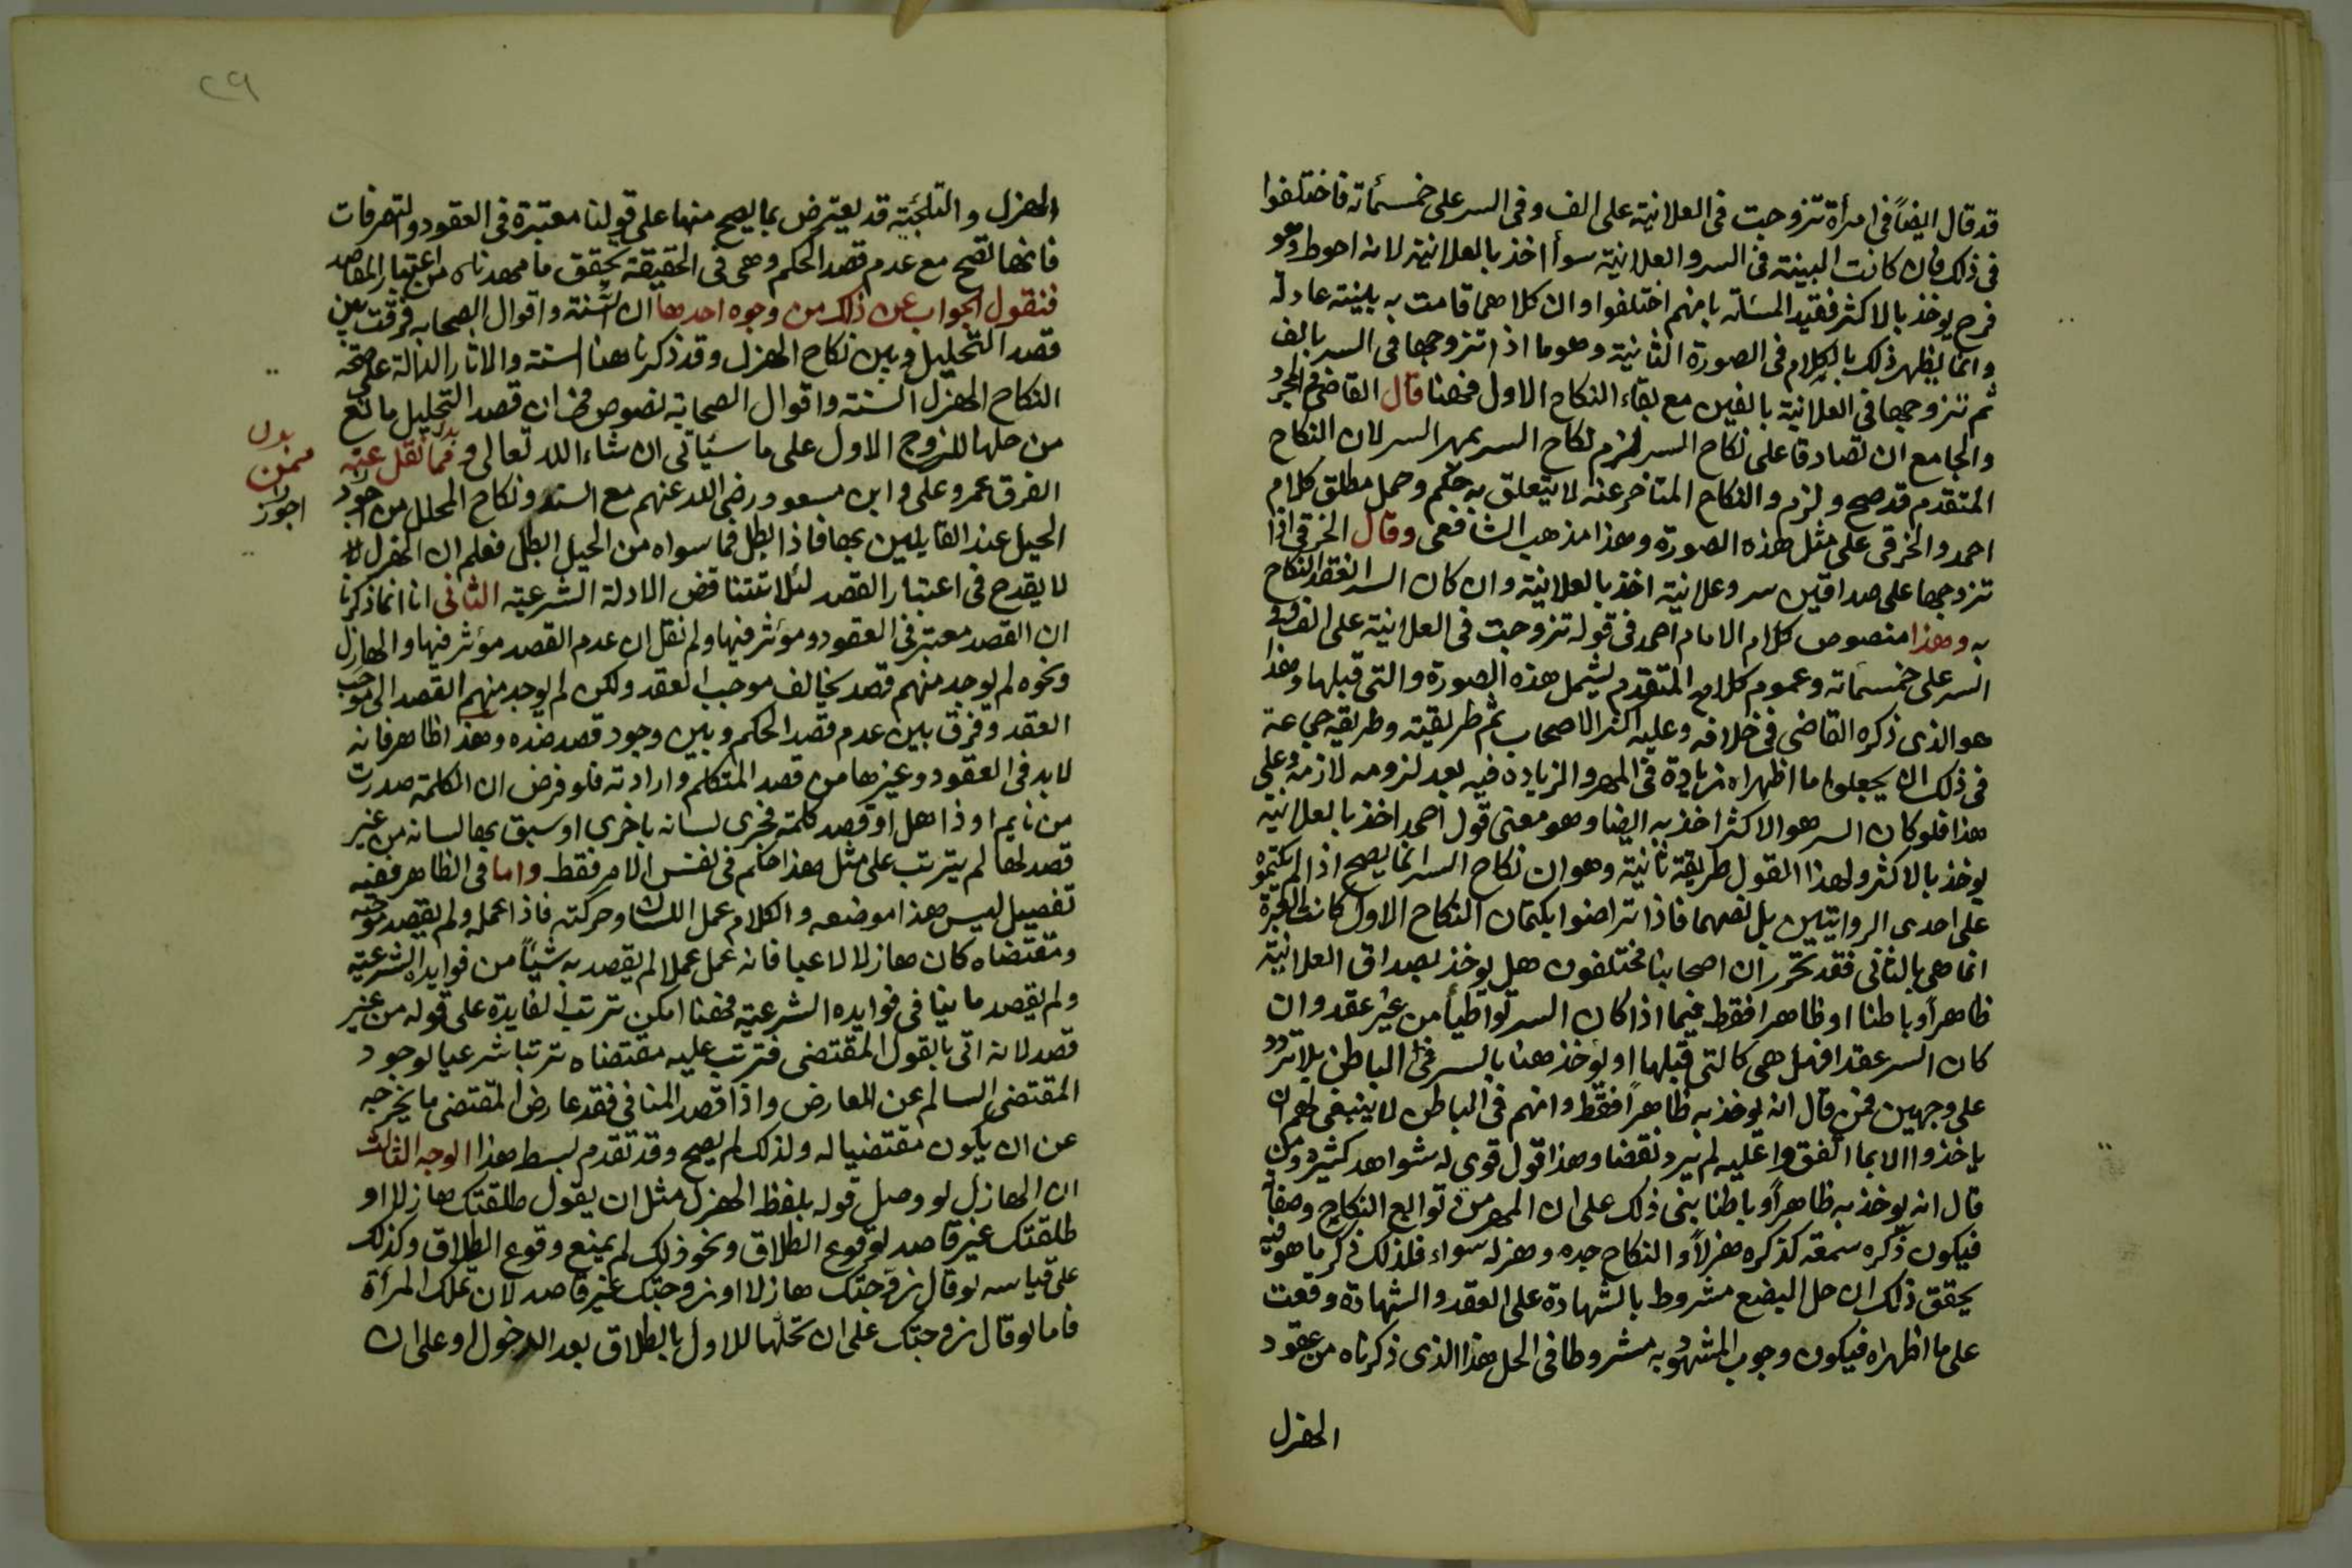 قد قال ايضاً فى امرأة تزوجت فى العلانية على الف وفى السر على خمسمائة فاختلفوا
فى ذلك فان كانت البينة فى السر والعلانية سوأ اخذ بالعلانية لانه احوط وهو
فرج يوخذ بالاكثر فقيد المسئاته بانهم اختلفوا وان كلاهما قامت به بينته عادلة
وانما يظهر ذلك بالكلام فى الصورة الثانية وهو ما اذا تزوجها فى السر بالف
ثم تزوجها فى العلانية بالفين مع بقاء النكاح الاول فهنا قال القاضى فى المجرد
والجامع ان تصادقا على نكاح السر لزم نكاح السر بمهر السر لان النكاح
المتقدم قد صح ولزم والنكاح المتاخر عنه لا يتعلق به حكم وحمل مطلق كلام
احمد والخرقى على مثل هذه الصورة وهذا مذهب الشافعى وقال الخرقى اذا
تزوجها على صداقين سر وعلانية اخذ بالعلانية وان كان السر انعقد النكاح
به وهذا منصوص كلام الامام احمد فى قوله تزوجت فى العلانية على الف وفى
السر على خمسمائة وعموم كلامه المتقدم يشمل هذه الصورة والتى قبلها وهذا
هو الذى ذكره القاضى فى خلافه وعليه اكثر الاصحاب ثم طريقته وطريقه جماعة
فى ذلك ان يجعلوا ما اظهراه زيادة فى المهر والزيادة فيه بعد لزومه لازمة وعلى
هذا فلو كان السر هو الاكثر اخذ به ايضا وهو معنى قول احمد اخذ بالعلانية
يوخذ بالاكثر ولهذا القول طريقة ثانية وهو ان نكاح السر انما يصح اذا لم يكتموه
على احدى الروايتين بل نصهما فاذا تراضوا بكتمان النكاح الاول كانت العبرة
انما هى بالثانى فقد تحرر ان اصحابنا مختلفون هل يوخذ بصداق العلانية
ظاهراً وباطنا او ظاهرا فقط فيما اذا كان السر تواطيأ من غير عقد وان
كان السر عقدا فهل هى كالتى قبلها او يوخذ هنا بالسر فى الباطن بلا تردد
على وجهين فمن قال انه يوخذ به ظاهراً فقط وانهم فى الباطن لا ينبغى لهم ان
ياخذوا الا بما اتفقوا عليه لم يرد نقضا وهذا قول قوى له شواهد كثيره ومن
قال انه يوخذ به ظاهراً وباطنا بنى ذلك على ان المهر من توابع النكاح وصفاته
فيكون ذكره سمعة كذكره هزلاً والنكاح جده وهزله سواء فلذلك ذكر ما هو فيه
يحقق ذلك ان حل البضع مشروط بالشهادة على العقد والشهادة وقعت
على ما اظهراه فيكون وجوب المشهود به مشروطا فى الحل هذا الذى ذكرناه من عقود
الهزل
٢٩
الهزل والتلجئة قد يعترض بما يصح منها على قولنا معتبرة فى العقود والتصرفات
فانها تصح مع عدم قصد الحكم وهى فى الحقيقة يحقق ما مهدناه من اعتبار المقاصد
فنقول الجواب عن ذلك من وجوه احدها ان السنة واقوال الصحابه فرقت بين
قصد التحليل وبين نكاح الهزل وقد ذكرنا هنا السنة والاثار الدالة على صحة
النكاح الهزل السنة واقوال الصحابة نصوص فى ان قصد التحليل مانع
من حلها للزوج الاول على ما سيأتى ان شاء الله تعالى و فما نقل عنه
بدل
فمن
الفرق عمر وعلى وابن مسعود رضى الله عنهم مع السنه ونكاح المحلل من اجود
اجوز
الحيل عند القايلين بها فاذا بطل فما سواه من الحيل ابطل فعلم ان الهزل
لا يقدح فى اعتبار القصد لئلا تتناقض الادلة الشرعية الثانى انا انما ذكرنا
ان القصد معتبر فى العقود ومؤثر فيها ولم نقل ان عدم القصد مؤثر فيها والهازل
ونحوه لم يوجد منهم قصد يخالف موجب العقد ولكن لم يوجد منهم القصد الى موجب
العقد وفرق بين عدم قصد الحكم وبين وجود قصد ضده وهذا ظاهر فانه
لا بد فى العقود وغيرها من قصد المتكلم وارادته فلو فرض ان الكلمة صدرت
من نايم او ذاهل او قصد كلمة فجرى لسانه باخرى او سبق بها لسانه من غير
قصد لها لم يترتب على مثل هذا حكم فى نفس الامر فقط واما فى الظاهر ففيه
تفصيل ليس هذا موضعه والكلام عمل اللسان وحركته فاذا عمله ولم يقصد موجبه
ومقتضاه كان هازلا لاعبا فانه عمل عملا لم يقصد به شيئاً من فوايده الشرعية
ولم يقصد ما ينافى فوايده الشرعية فهنا امكن ترتب الفايدة على قوله من غير
قصد لانه اتى بالقول المقتضى فترتب عليه مقتضاه ترتبا شرعيا لوجود
المقتضى السالم عن المعارض واذا قصد المنافى فقد عارض المقتضى ما يخرجه
عن ان يكون مقتضيا له ولذلك لم يصح وقد تقدم بسط هذا الوجه الثالث
ان الهازل لو وصل قوله بلفظ الهزل مثل ان يقول طلقتك هازلا او
طلقتك غير قاصد لوقوع الطلاق ونحو ذلك لم يمنع وقوع الطلاق وكذلك
على قياسه لو قال زوجتك هازلا او زوجتك غير قاصد لان تملك المرأة
فاما لو قال زوجتك على ان تحلها للاول بالطلاق بعد الدخول او على ان